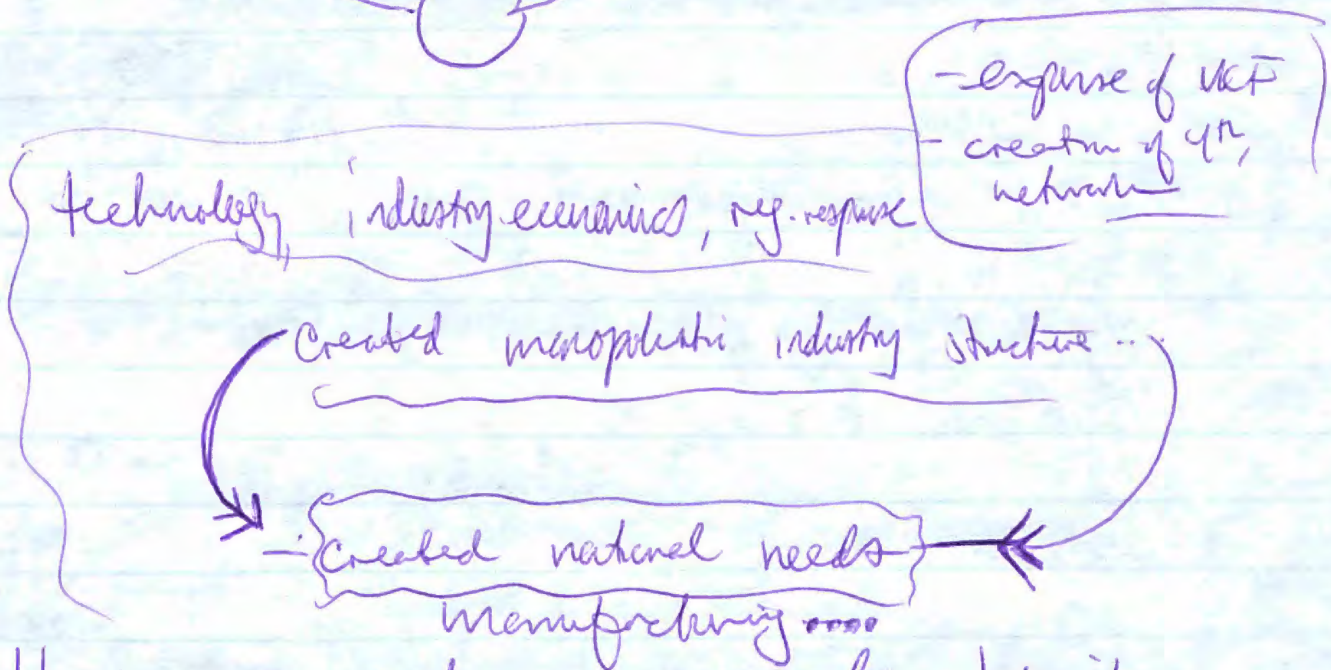 - expanse of UCF
- creation of 4th,
network
technology, industry economics, reg. response
Created monopolistic industry structure ..
- created national needs
manufacturing ....